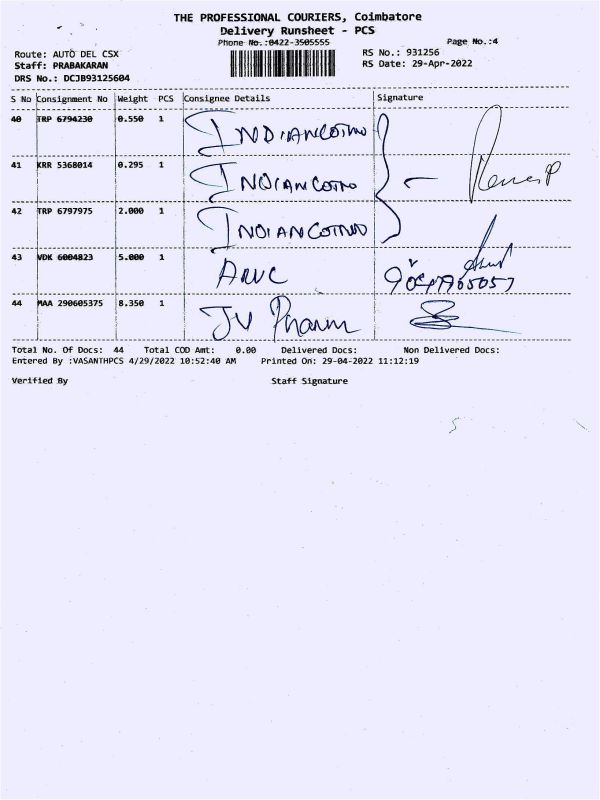 THE PROFESSIONAL COURIERS, Coimbatore
Delivery Runsheet - PCS
Phone No.:0422-3505555 Page No.:4
Route: AUTO DEL CSX RS No.: 931256
Staff: PRABAKARAN RS Date: 29-Apr-2022
DRS No.: DCJB93125604
S No Consignment No Weight PCS Consignee Details Signature
40 TRP 6794230 0.550 1 INDIANCOTNO
41 KRR 5368014 0.295 1 INDIANCOTNO
42 TRP 6797975 2.000 1 INDIANCOTNO
43 VDK 6004823 5.000 1 ARVC
44 MAA 290605375 8.350 1 JV Pharm
Total No. Of Docs: 44 Total COD Amt: 0.00 Delivered Docs: Non Delivered Docs:
Entered By :VASANTHPCS 4/29/2022 10:52:40 AM Printed On: 29-04-2022 11:12:19
Verified By Staff Signature